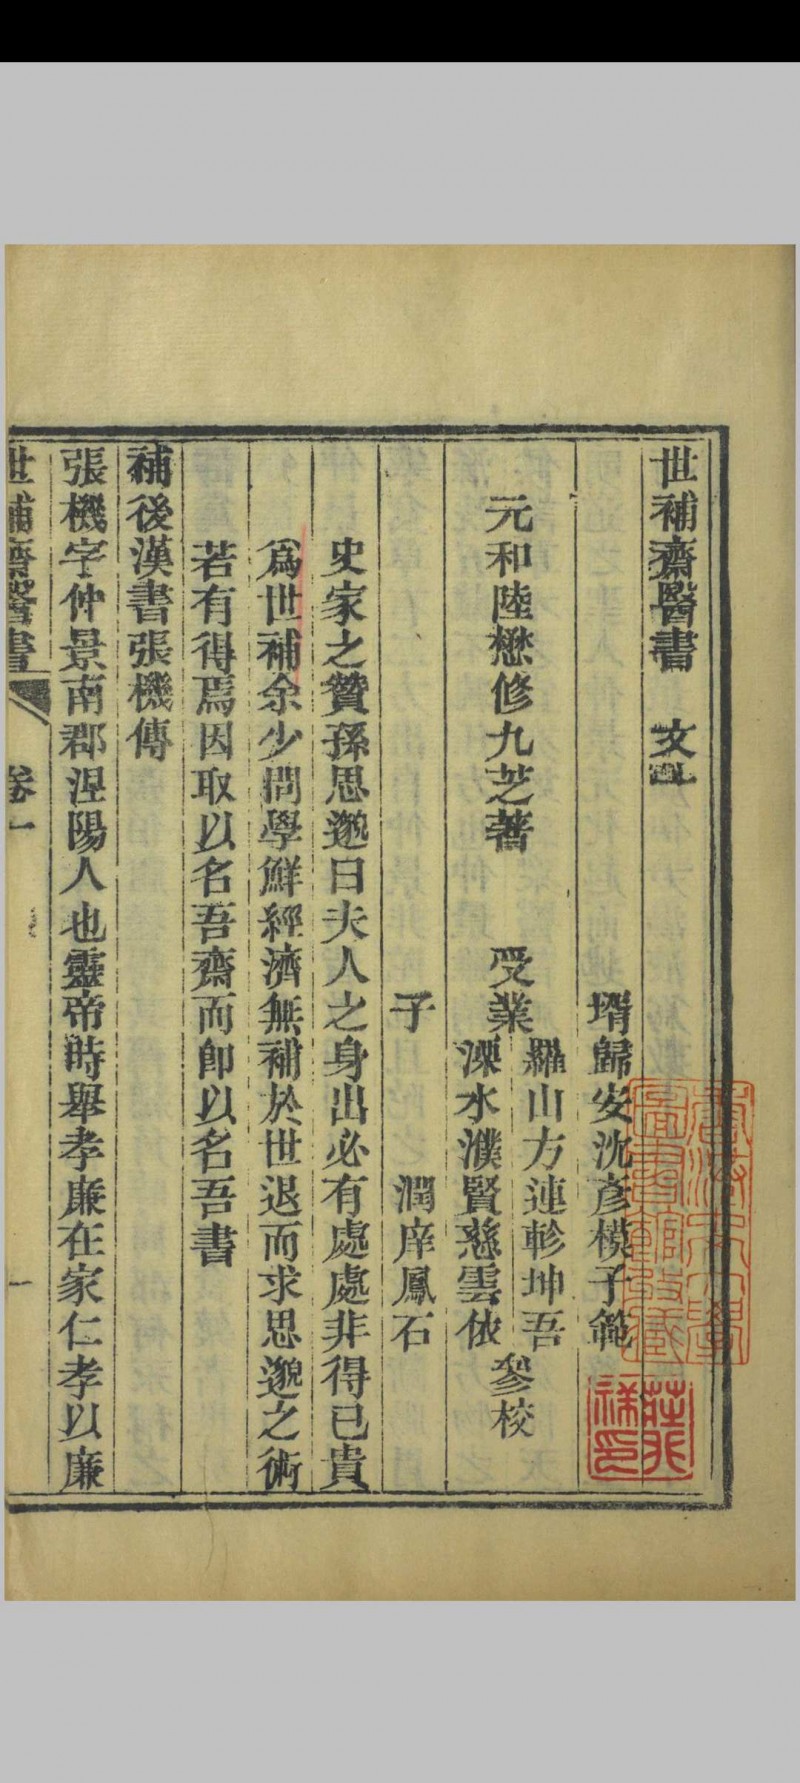 世補齋醫書　文一
壻歸安沈彥模子範
元和陸懋修九芝著　受業　羅山方連軫坤吾　參校
溧水濮賢慈雲依
子　潤庠鳳石
史家之贊孫思邈曰夫人之身出必有處處非得已貴
爲世補余少問學鮮經濟無補於世退而求思邈之術
若有得焉因取以名吾齋而卽以名吾書
補後漢書張機傳
張機字仲景南郡涅陽人也靈帝時舉孝廉在家仁孝以廉
世補齋醫書　卷一　一